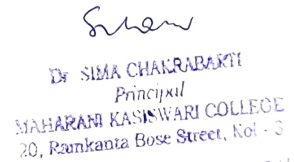 Dr SIMA CHAKRABARTI
Principal
MAHARANI KASISWARI COLLEGE
20, Ramkanta Bose Street, Kol - 3